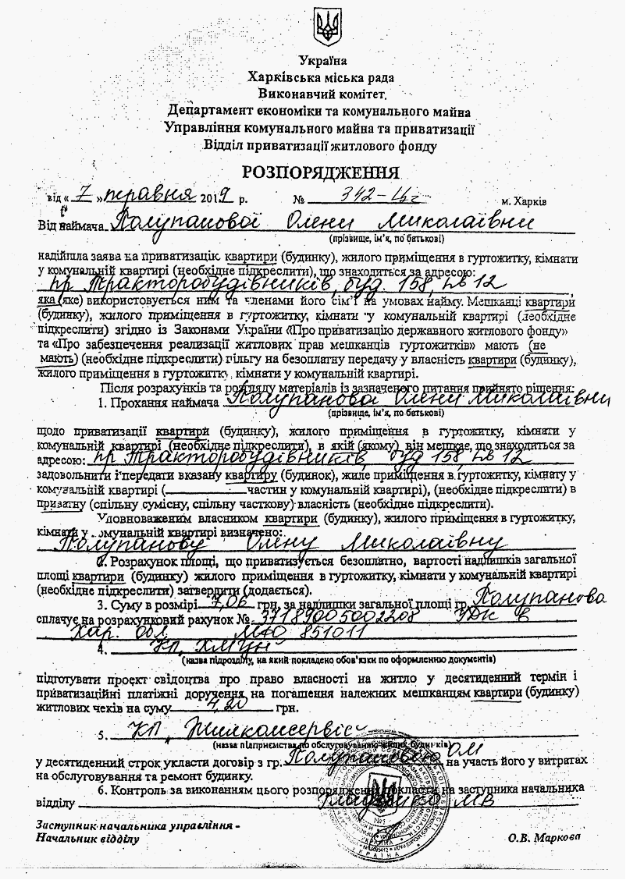 Україна
Харківська міська рада
Виконавчий комітет
Департамент економіки та комунального майна
Управління комунального майна та приватизації
Відділ приватизації житлового фонду
РОЗПОРЯДЖЕННЯ
від « 7 » травня 2019 р. № 342- м. Харків
Від наймача Полупанової Олени Миколаївни
(прізвище, ім’я, по батькові)
надійшла заява на приватизацію квартири (будинку), жилого приміщення в гуртожитку, кімнати
у комунальній квартирі (необхідне підкреслити), що знаходиться за адресою:
пр Тракторобудівників, буд. 158, кв 12
яка (яке) використовується ним та членами його сім’ї на умовах найму. Мешканці квартири
(будинку), жилого приміщення в гуртожитку, кімнати у комунальній квартирі (необхідне
підкреслити) згідно із Законами України «Про приватизацію державного житлового фонду»
та «Про забезпечення реалізації житлових прав мешканців гуртожитків» мають (не
мають) (необхідне підкреслити) пільгу на безоплатну передачу у власність квартири (будинку),
жилого приміщення в гуртожитку, кімнати у комунальній квартирі.
Після розрахунків та розгляду матеріалів із зазначеного питання прийнято рішення:
1. Прохання наймача Полупанова Олени Миколаївни
(прізвище, ім’я, по батькові)
щодо приватизації квартири (будинку), жилого приміщення в гуртожитку, кімнати у
комунальній квартирі (необхідне підкреслити), в якій (якому) він мешкає, що знаходиться за
адресою: пр Тракторобудівників, буд 158, кв 12
задовольнити і передати вказану квартиру (будинок), жиле приміщення в гуртожитку, кімнату у
комунальній квартирі ( частин у комунальній квартирі), (необхідне підкреслити) в
приватну (спільну сумісну, спільну часткову) власність (необхідне підкреслити).
Уповноваженим власником квартири (будинку), жилого приміщення в гуртожитку,
кімнати у комунальній квартирі визначено:
Полупанову Олену Миколаївну
2. Розрахунок площі, що приватизується безоплатно, вартості надлишків загальної
площі квартири (будинку) жилого приміщення в гуртожитку, кімнати у комунальній квартирі
(необхідне підкреслити) затвердити (додається).
3. Суму в розмірі 7,06 грн. за надлишки загальної площі гр. Полупанова
сплачує на розрахунковий рахунок № 37189005002208
Хар. обл МФО 851011
4. КП
(назва підрозділу, на який покладено обов’язки по оформленню документів)
підготувати проєкт свідоцтва про право власності на житло у десятиденний термін і
приватизаційні платіжні доручення на погашення належних мешканцям квартири (будинку)
житлових чеків на суму 4,20 грн.
5. КП Жилкомсервіс
(назва підприємства по обслуговуванню жилих будинків)
у десятиденний строк укласти договір з гр. ОМ на участь його у витратах
на обслуговування та ремонт будинку.
6. Контроль за виконанням цього розпорядження покласти на заступника начальника
відділу МВ
Заступник начальника управління -
Начальник відділу О.В. Маркова